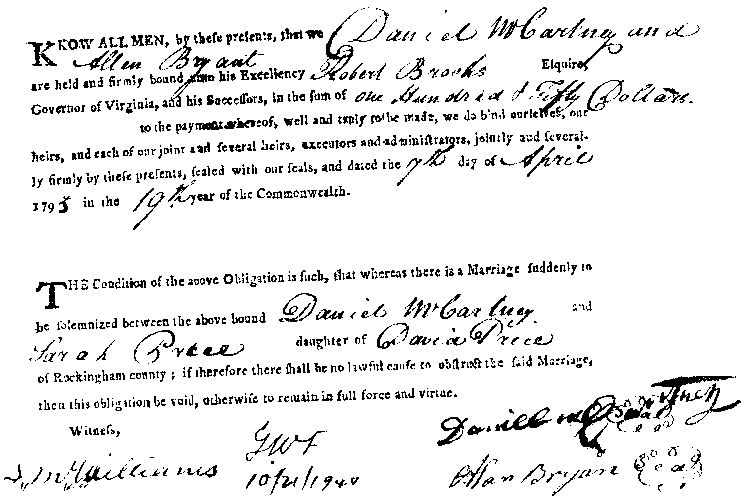 KNOW ALL MEN, by these presents, that we Daniel McCartney and
Allen Bryant
are held and firmly bound unto his Excellency Robert Brooks Esquire,
Governor of Virginia, and his Successors, in the sum of one Hundred & Fifty Dollars.
to the payment whereof, well and truly to be made, we do bind ourselves, our
heirs, and each of our joint and several heirs, executors and administrators, jointly and several-
ly firmly by these presents, sealed with our seals, and dated the 7th day of April
1795 in the 19th year of the Commonwealth.
THE Condition of the above Obligation is such, that whereas there is a Marriage suddenly to
be solemnized between the above bound Daniel McCartney and
Sarah Price daughter of David Price
of Rockingham county; if therefore there shall be no lawful cause to obstruct the said Marriage,
then this obligation be void, otherwise to remain in full force and virtue.
Witness,
Daniel
McWilliams
GWT
Allan Bryan Seal